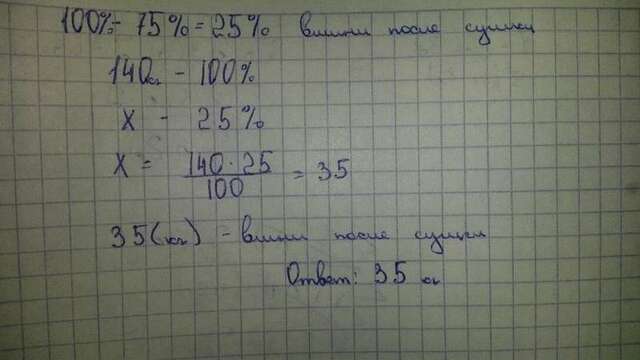 100% - 75% = 25% вишни после сушки
140кг - 100%
х - 25%
х = 140 · 25 / 100 = 35
35 (кг) - вишни после сушки
Ответ: 35 кг